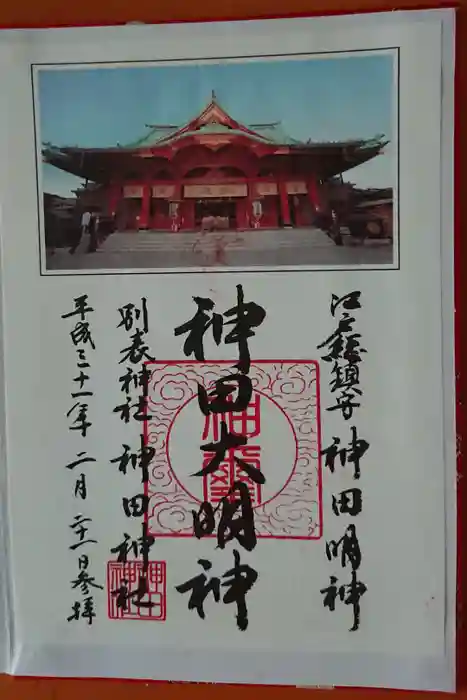 江戸総鎮守 神田明神
神田大明神
別表神社 神田神社
平成三十一年 二月 二十一日参拝
神田
神社